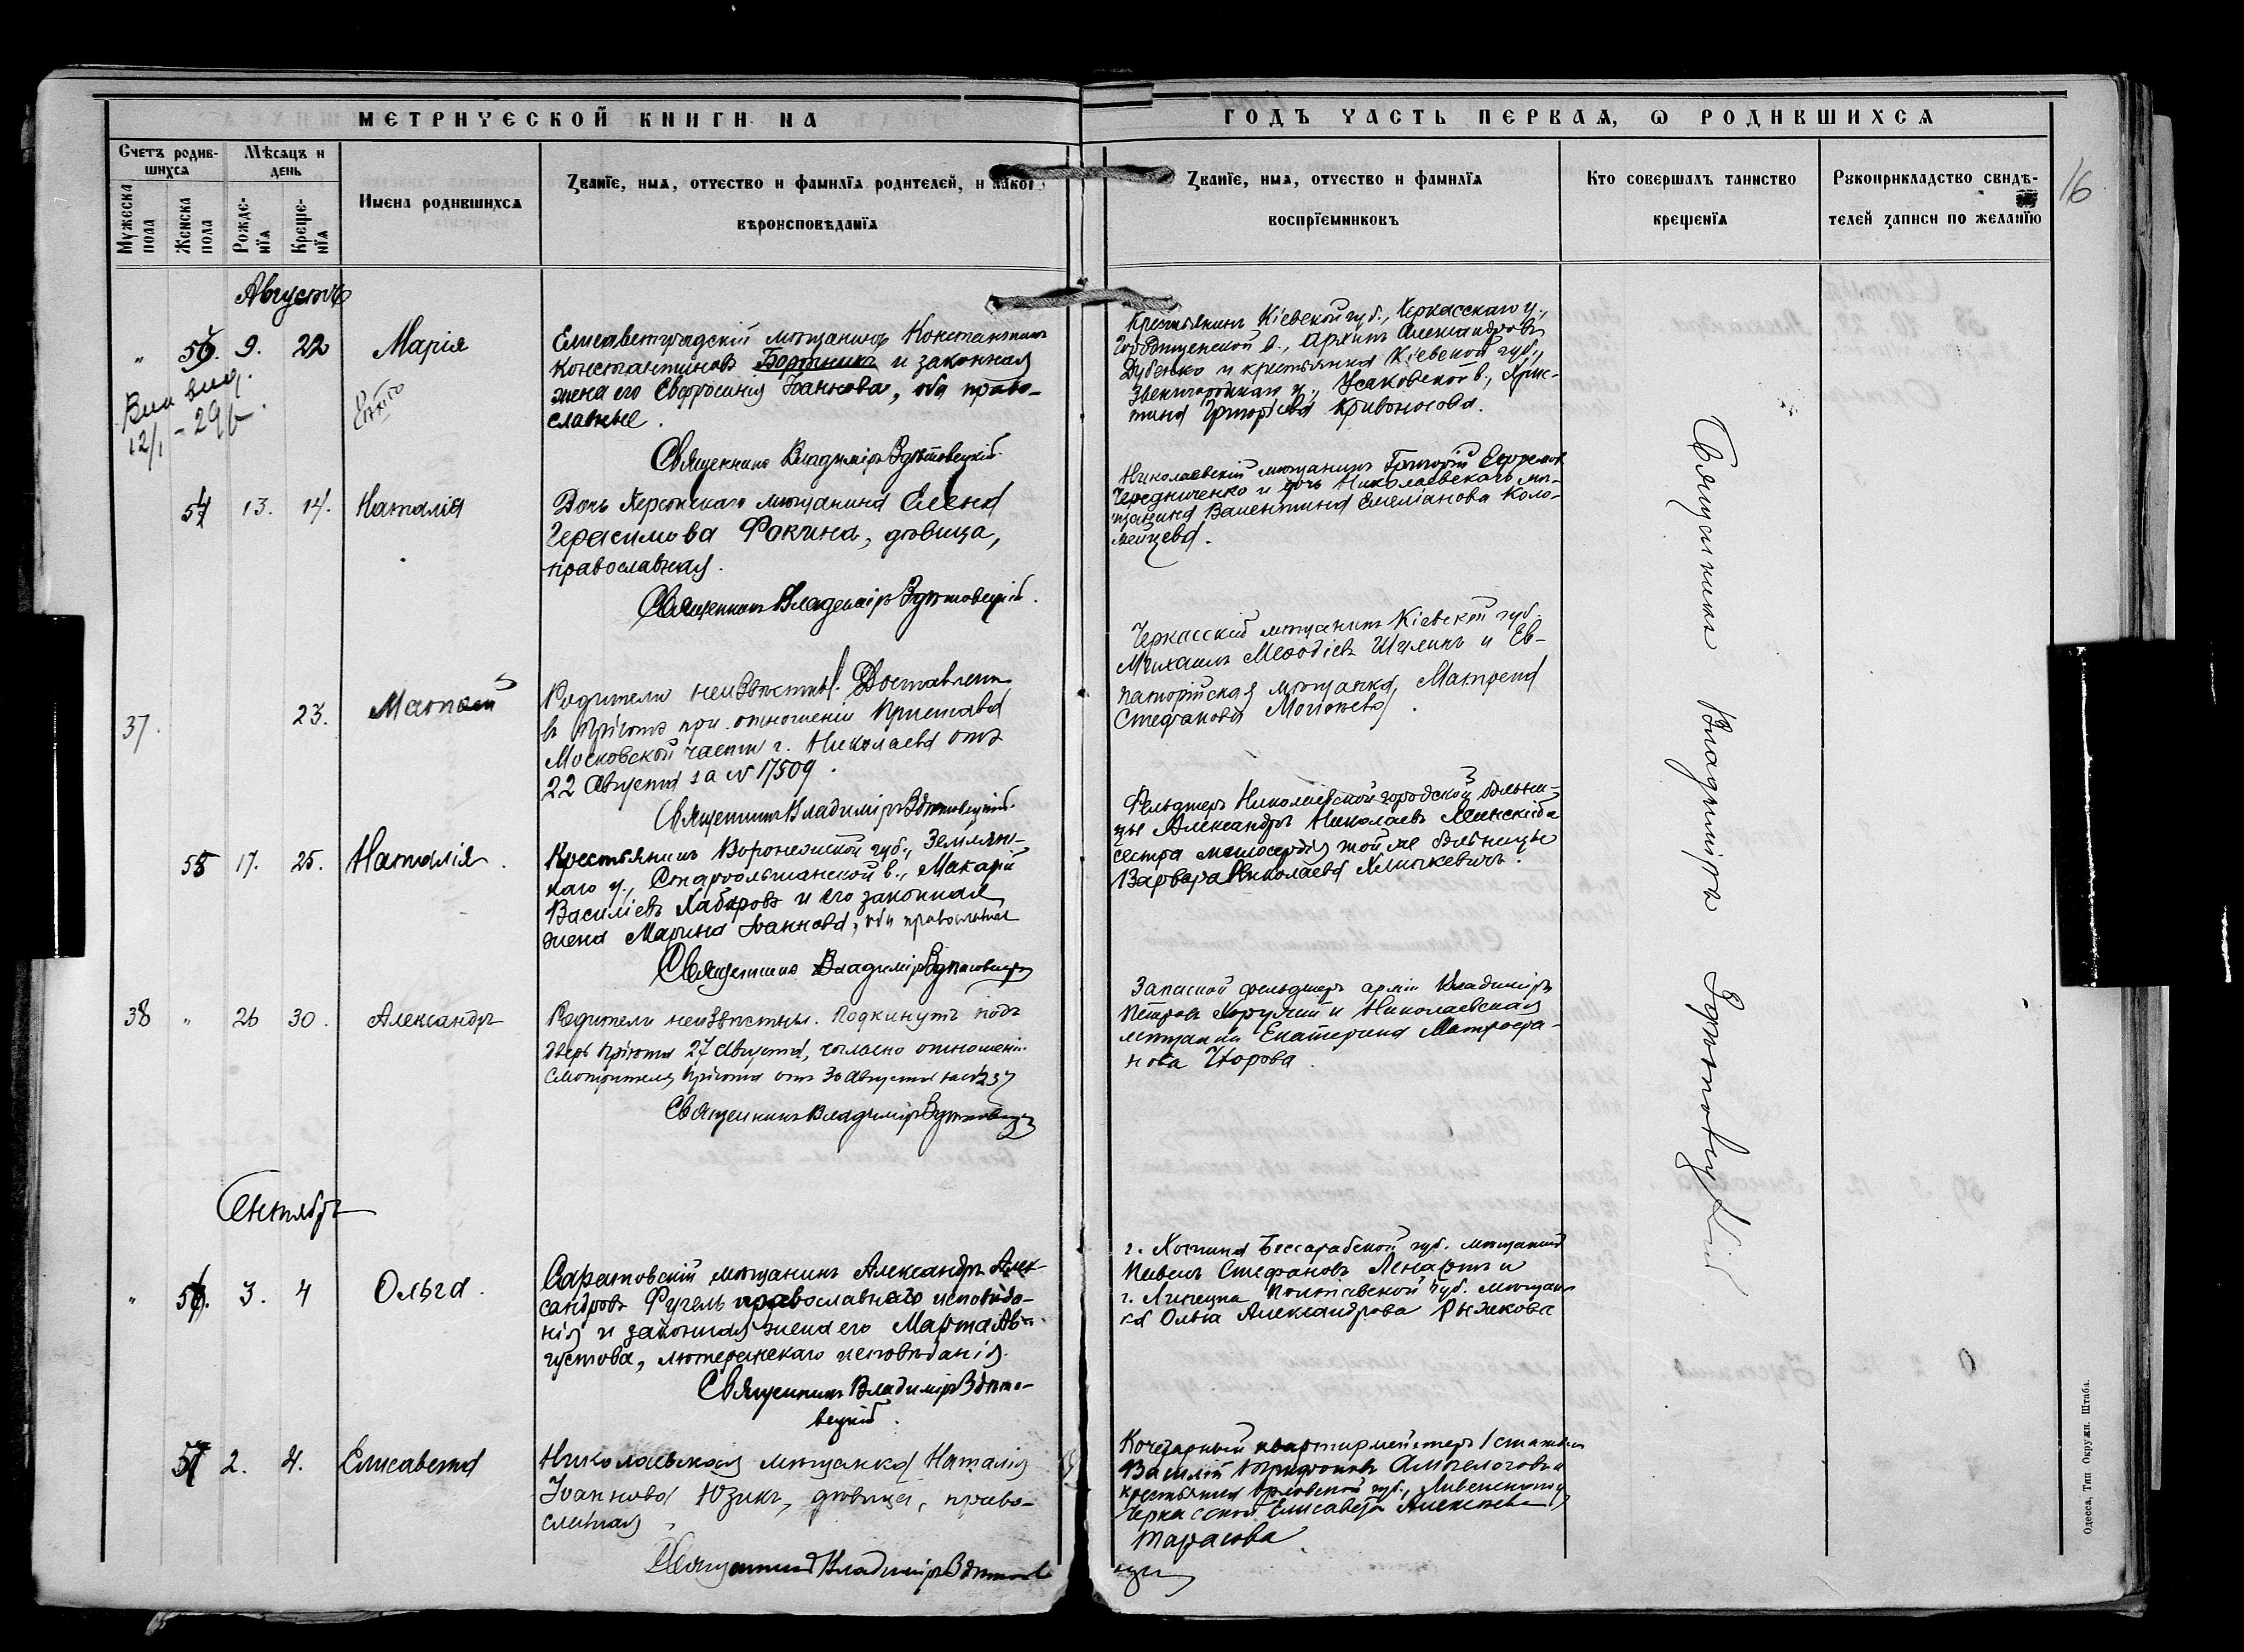 МЕТРИЧЕСКОЙ КНИГИ НА
Счетъ родив-
шихся
Мѣсяцъ и
день
Мужеска
пола
Женска
пола
Рожде-
нія
Креще-
нія
Имена родившихся
Званіе, имя, отчество и фамилія родителей, и какого
вѣроисповѣданія
Августъ
" 9. 22 Марія
Елисаветградскій мѣщанинъ Константинъ
Константиновъ Бортникъ и законная
жена его Евфросинія Іоаннова, оба право-
славные.
Священникъ Владиміръ Здѣтовецкій.
12/I - 29
54 13. 14. Наталія
Дочь Херсонскаго мѣщанина Елена
Герасимова Фокина, дѣвица,
православная.
Священникъ Владиміръ Здѣтовецкій.
37. 23.
Родители неизвѣстны. Доставленъ
въ Пріютъ при отношеніи Пристава
Московской части г. Николаева отъ
22 Августа за № 17509.
Священникъ Владиміръ Здѣтовецкій.
55 17. 25. Наталія.
Крестьянинъ Воронежской губ., Землян-
каго у., Староольшанской в., Макарій
Василіевъ и его законная
жена Марина Іоаннова, оба православные
Священникъ Владиміръ Здѣтовецкій
38 " 26 30. Александръ
Родители неизвѣстны. Подкинутъ подъ
дверь Пріюта 27 Августа, согласно отношенію
Смотрителя Пріюта отъ 30 Августа за № 237
Священникъ Владиміръ Здѣтовецкій
Сентябрь
" 56. 3. 4 Ольга.
Саратовскій мѣщанинъ Александръ Алек-
сандровъ Фугель православнаго исповѣда-
нія и законная жена его Марта Ав-
густова, лютеранскаго исповѣданія.
Священникъ Владиміръ Здѣто-
вецкій.
57 2. 4. Елисавета
Николаевская мѣщанка Наталія
Іоаннова Юзикъ, дѣвица, право-
славная
Священникъ Владиміръ Здѣтов
ГОДЪ ЧАСТЬ ПЕРВАЯ, Ѡ РОДИВШИХСЯ
Званіе, имя, отчество и фамилія
воспріемниковъ
Кто совершалъ таинство
крещенія
Рукоприкладство свидѣ-
телей записи по желанію
16
Крестьянинъ Кіевской губ., Черкасскаго у.,
Городищенской в., Архипъ Александровъ
Дубенко и крестьянка Кіевской губ.,
Звенигородскаго у., в., Хрис-
тина Григоріева Кривоносова.
Николаевскій мѣщанинъ Григорій Ефремовъ
Чередниченко и дочь Николаевскаго мѣ-
щанина Валентина Емеліанова Коло-
мейцева.
Черкасскій мѣщанинъ Кіевской губ.
Михаилъ Меѳодіевъ и Ев-
паторійская мѣщанка, Матрена
Стефанова
Фельдшеръ Николаевской городской больни-
цы Александръ Николаевъ
сестра милосердія той же больницы
Варвара Николаева
Запасной фельдшеръ арміи Владиміръ
Петровъ и Николаевская
мѣщанка Екатерина Митрофа-
нова
г. Хотина Бессарабской губ. мѣщанинъ
Павелъ Стефановъ и
г. Полтавской губ. мѣщан-
ка Ольга Александрова Рыжкова
Кочегарный квартирмейстеръ I статьи
Василій
крестьянка Орловской губ.,
Елисавета Алексѣева
Тарасова
Священникъ Владиміръ Здѣтовецкій.
Одесса, Тип. Окружн. Штаба.